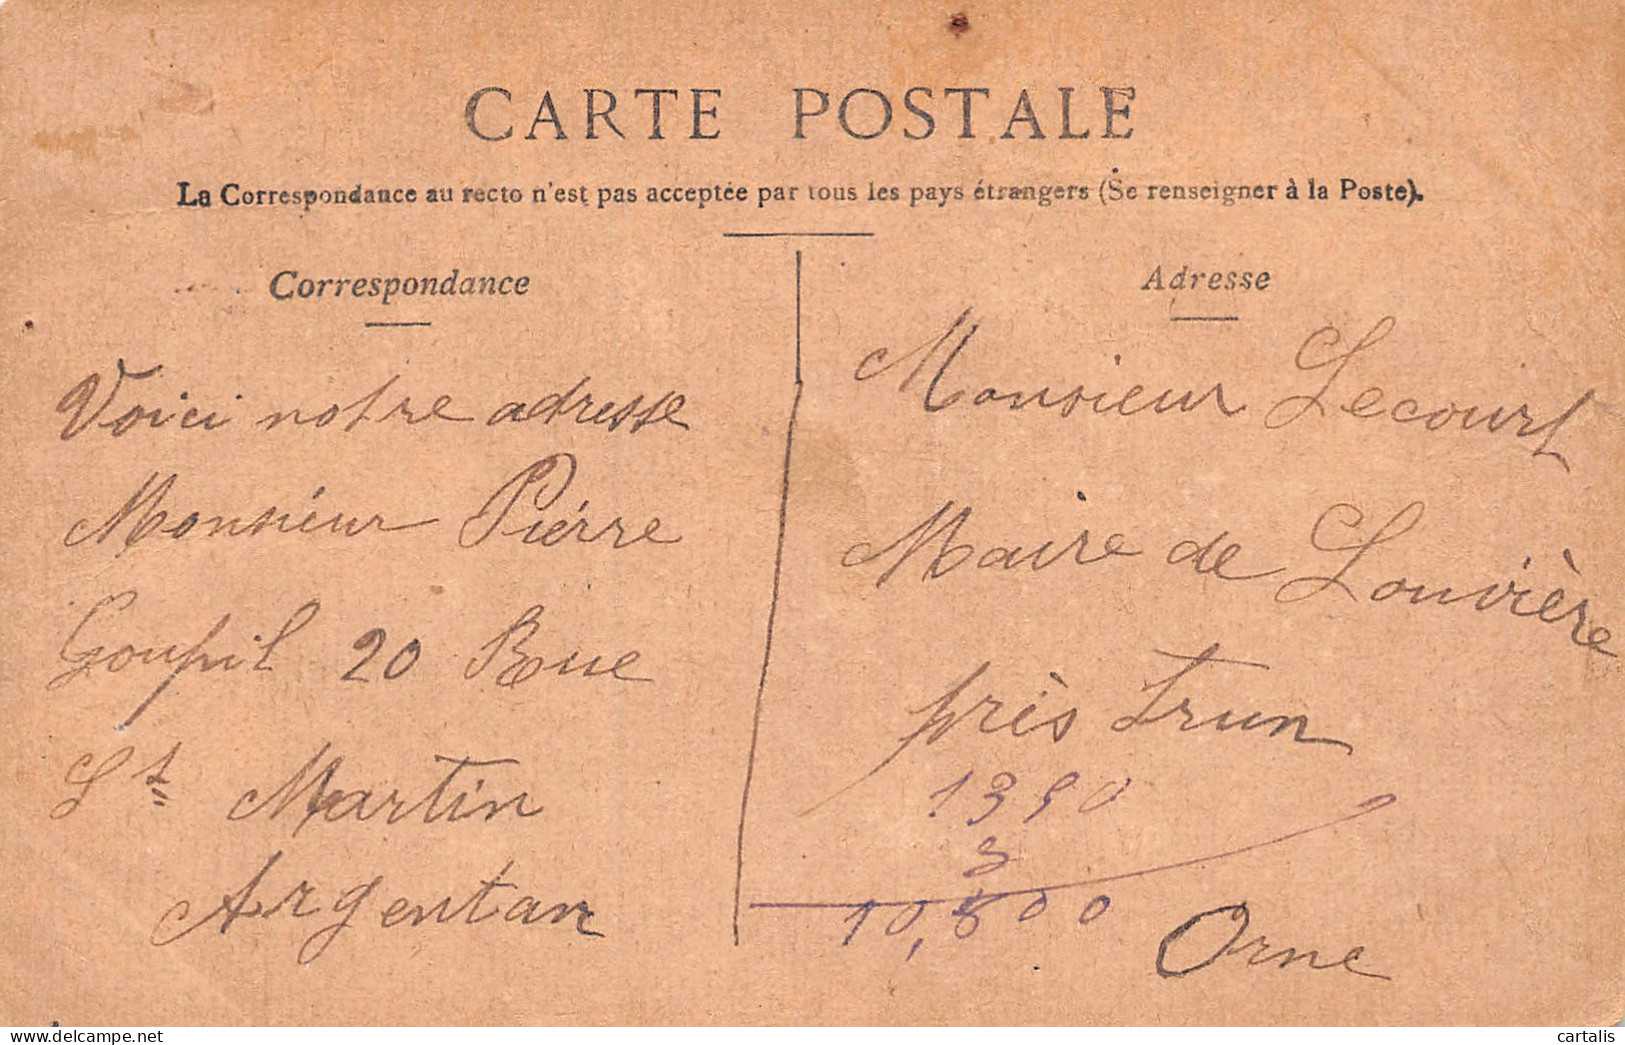 CARTE POSTALE
La Correspondance au recto n'est pas acceptée par tous les pays étrangers (Se renseigner à la Poste).
Correspondance
Voici notre adresse
Monsieur Pierre
Goupil 20 Rue
St Martin
Argentan
Adresse
Monsieur Lecourt
Maire de Louvière
près Trun
1350
10,800
Orne
cartalis